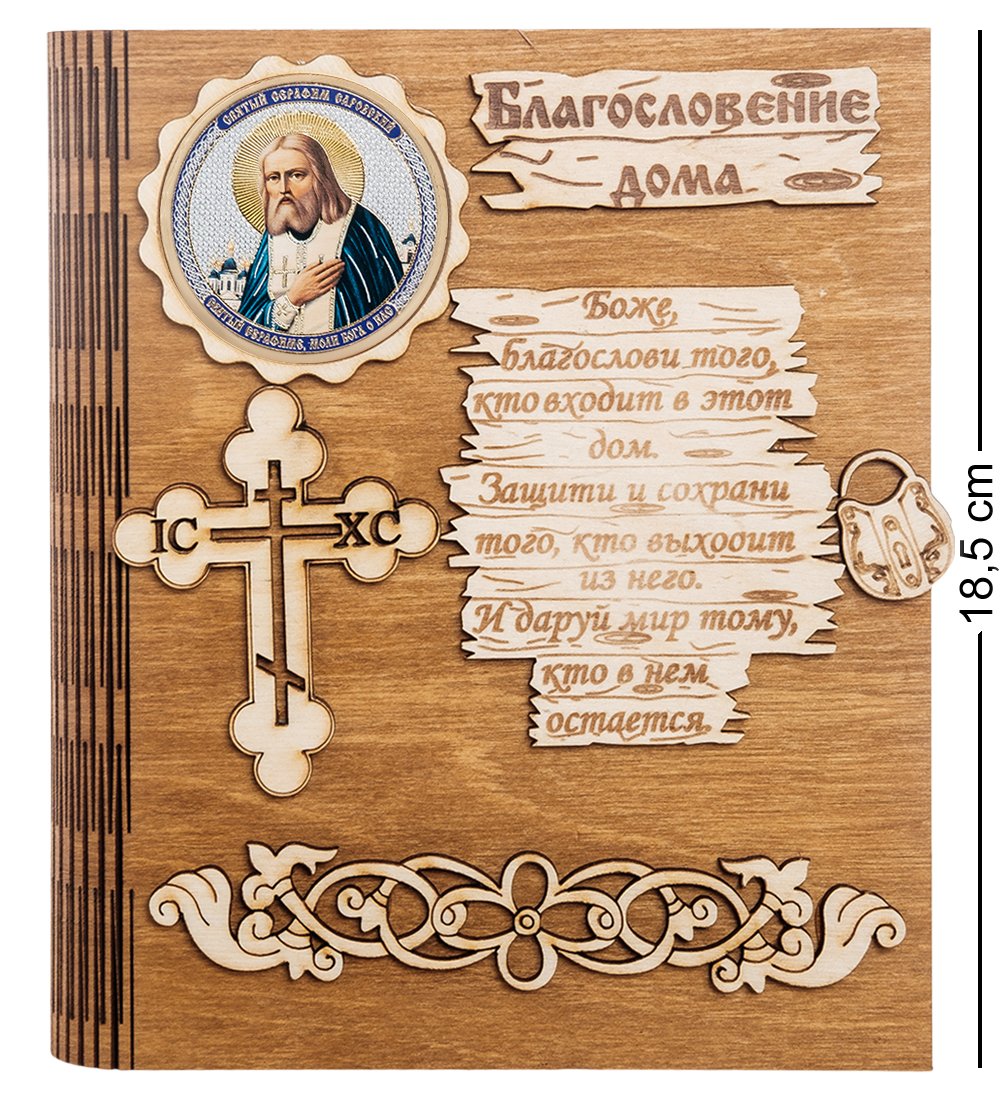 СВЯТЫЙ СЕРАФИМ САРОВСКИЙ
СВЯТЫЙ СЕРАФИМЕ, МОЛИ БОГА О НАС
Благословение
дома
Боже,
Благослови того,
кто входит в этот
дом.
Защити и сохрани
того, кто выходит
из него.
И даруй мир тому,
кто в нем
остается.
IC XC
18,5 cm